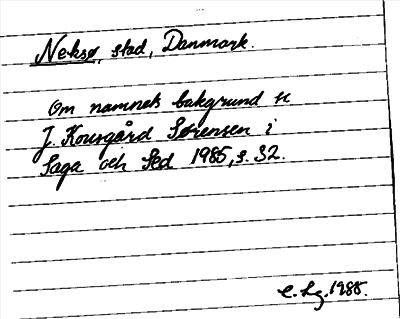 Neksø, stad, Danmark.
Om namnets bakgrund se
J. Kousgård Sørensen i
Saga och Sed 1985, s. 32.
C. Lg. 1988.